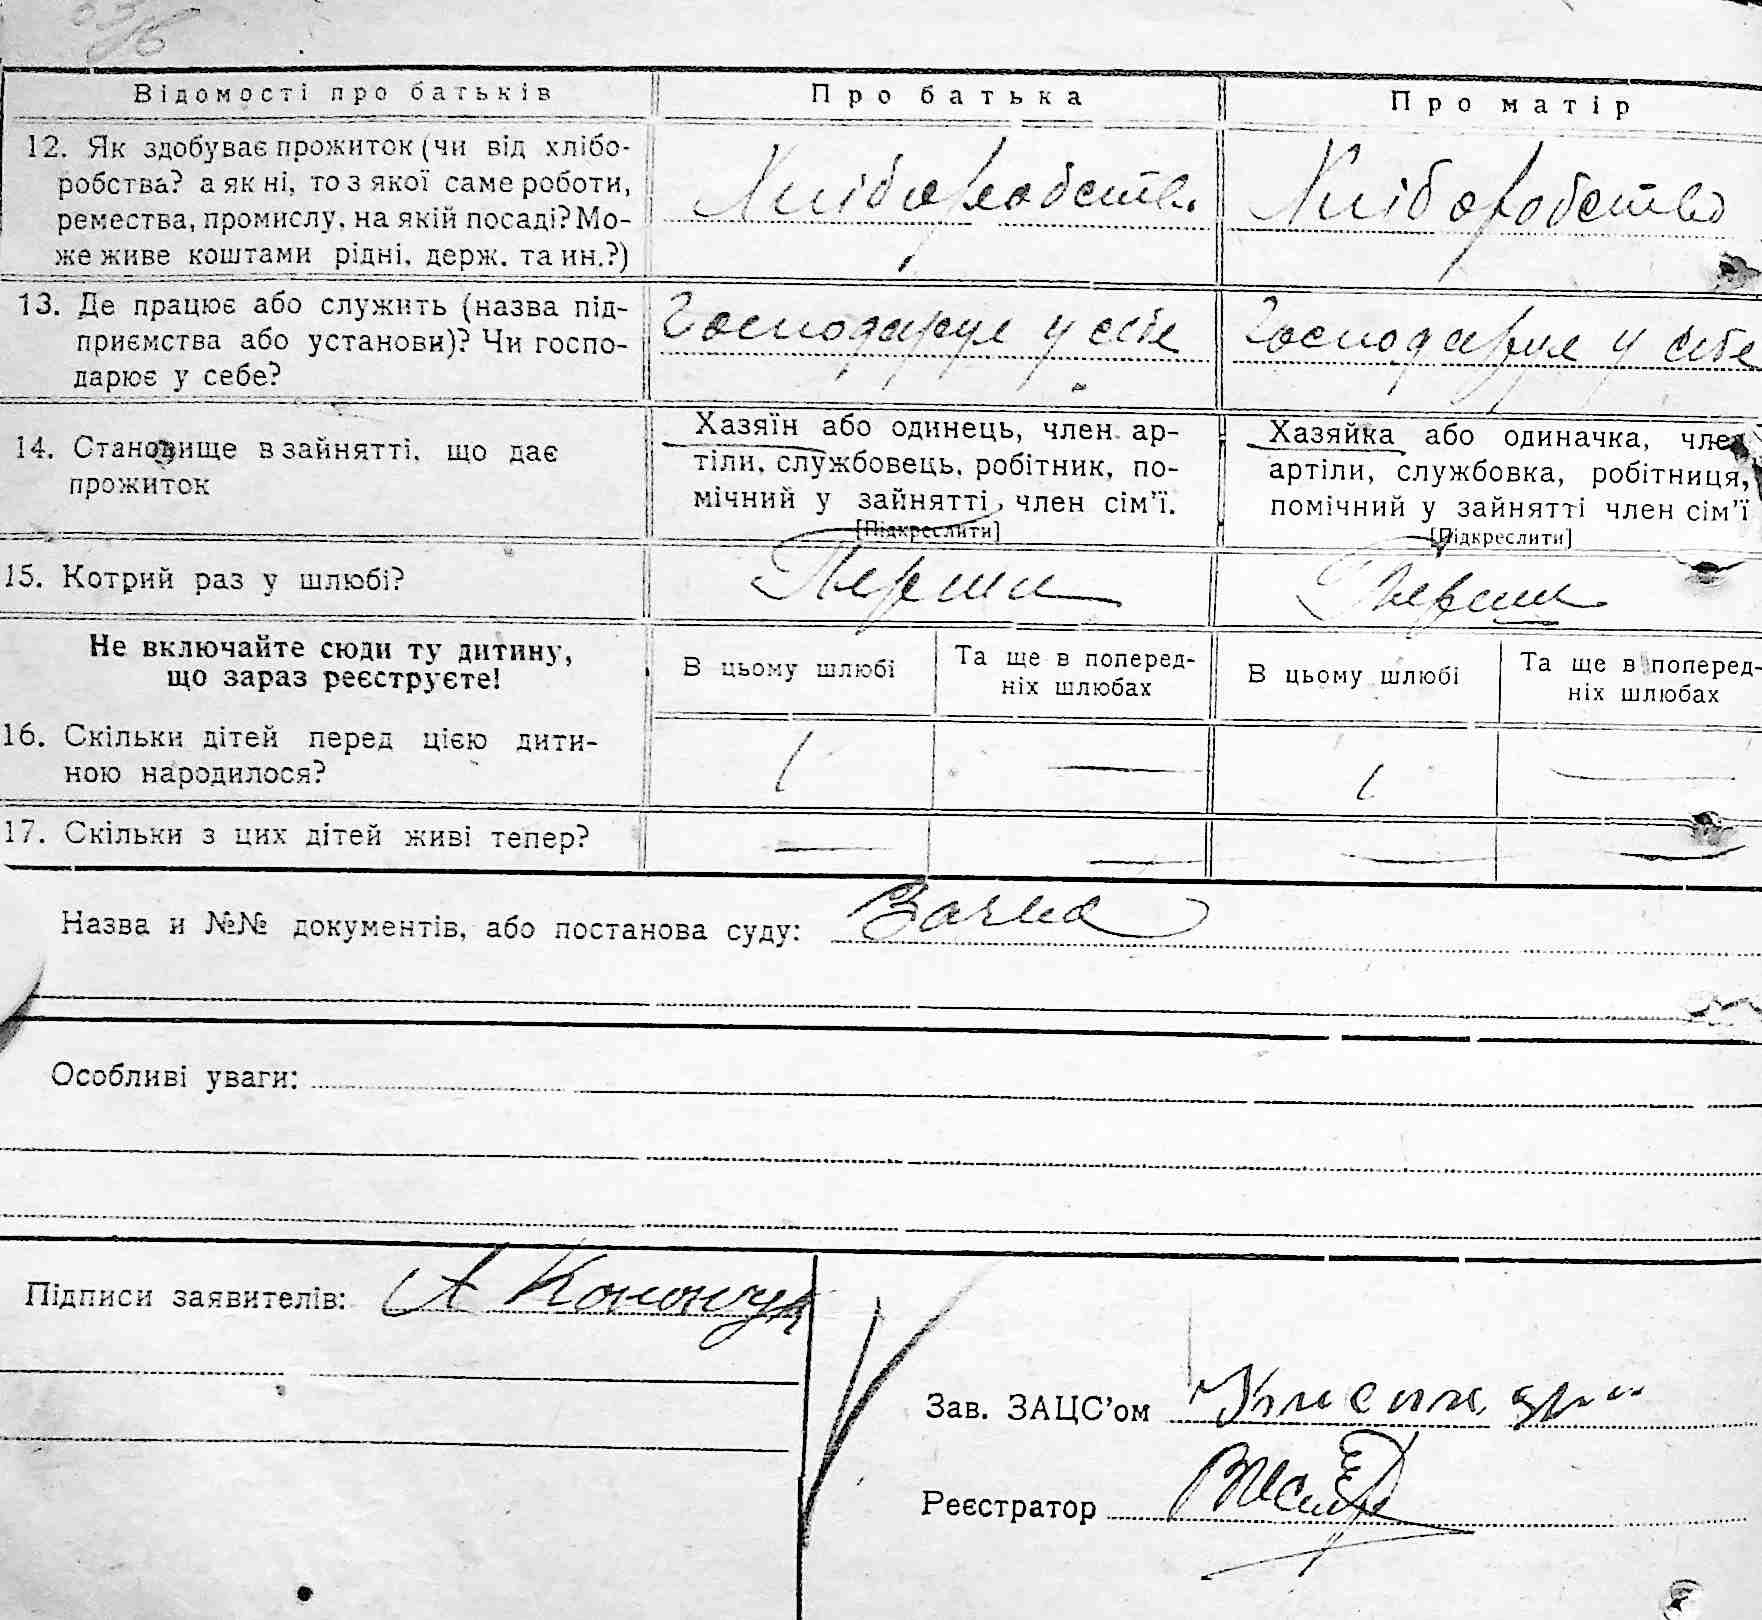 Відомості про батьків
Про батька
Про матір
12. Як здобуває прожиток (чи від хлібо-
робства? а як ні, то з якої саме роботи,
ремества, промислу, на якій посаді? Мо-
же живе коштами рідні, держ. та ин.?)
Хліборобство
Хліборобство
13. Де працює або служить (назва під-
приємства або установи)? Чи госпо-
дарює у себе?
Господарує у себе
Господарує у себе
14. Становище в зайнятті, що дає
прожиток
Хазяїн або одинець, член ар-
тіли, службовець, робітник, по-
мічний у зайнятті, член сім'ї.
[Підкреслити]
Хазяйка або одиначка, член
артіли, службовка, робітниця,
помічний у зайнятті член сім'ї
[Підкреслити]
15. Котрий раз у шлюбі?
Перши
Перши
Не включайте сюди ту дитину,
що зараз реєструєте!
В цьому шлюбі
Та ще в поперед-
ніх шлюбах
В цьому шлюбі
Та ще в поперед-
ніх шлюбах
16. Скільки дітей перед цією дити-
ною народилося?
1
—
1
—
17. Скільки з цих дітей живі тепер?
—
—
—
—
Назва и №№ документів, або постанова суду:
Особливі уваги:
Підписи заявителів: А Конончук
Зав. ЗАЦС'ом
Реєстратор